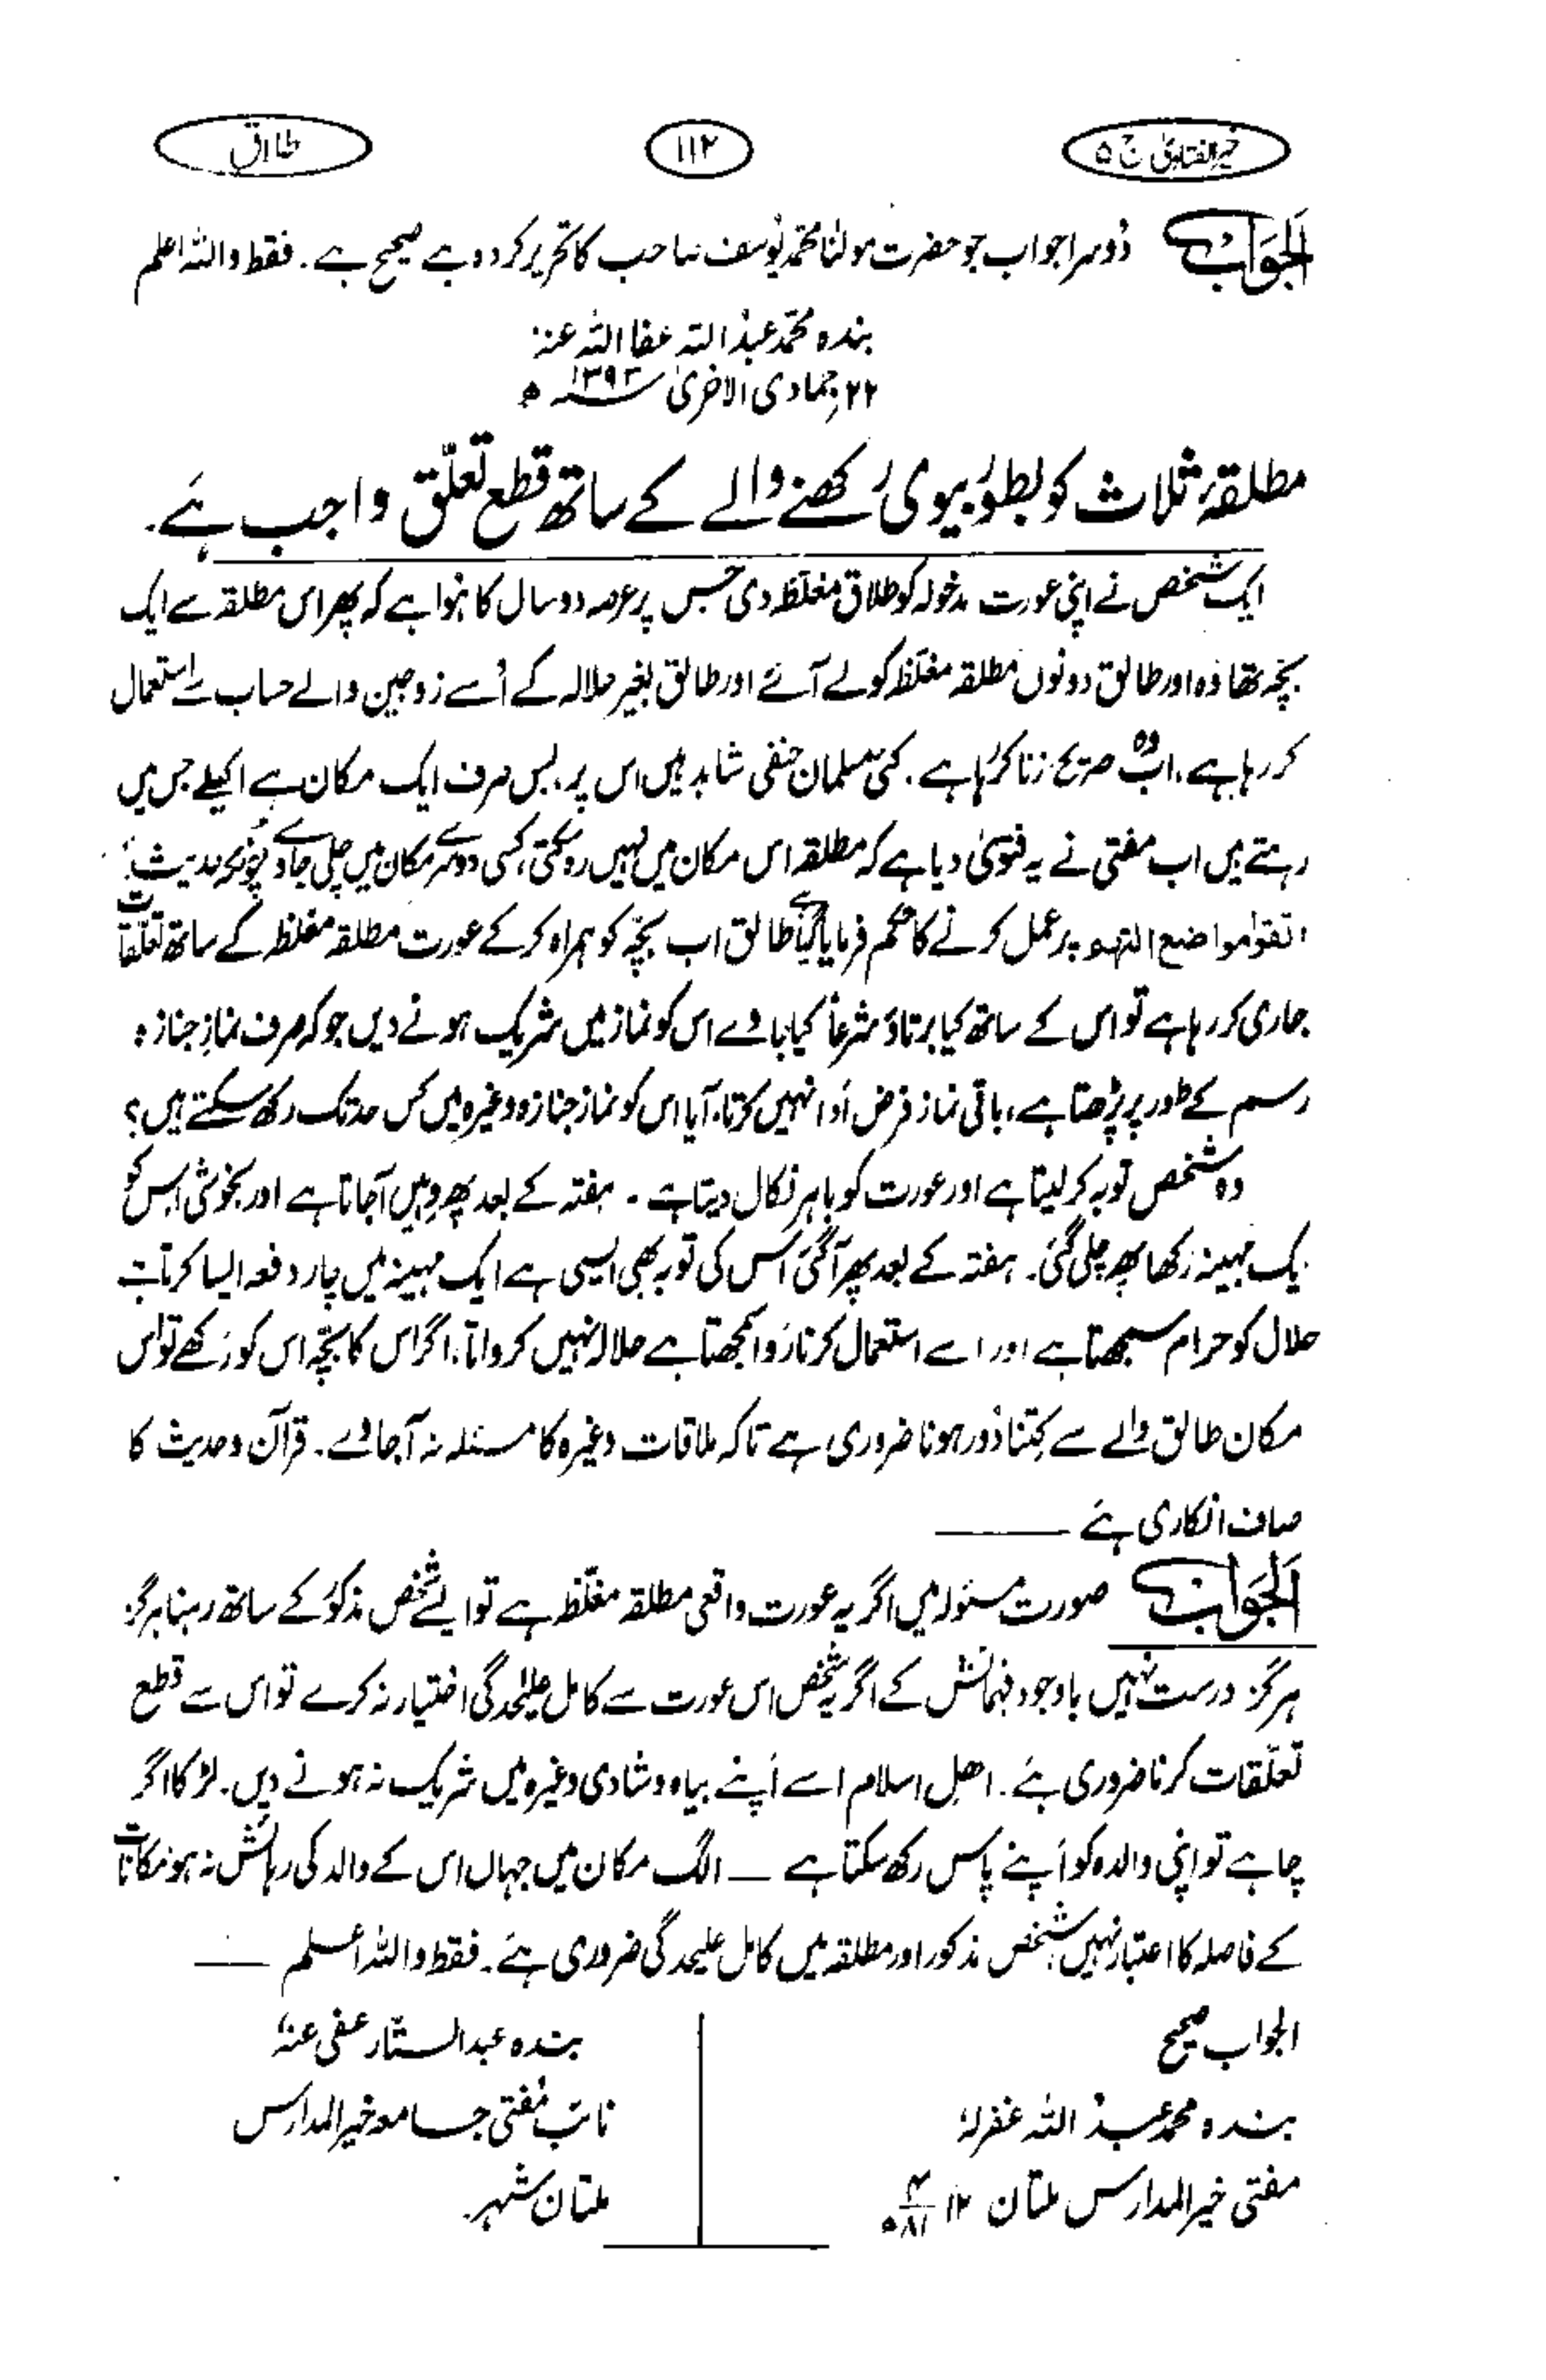 خیر الفتاویٰ ج ۵
۱۱۲
طلاق
الجواب دُوسرا جواب جو حضرت مولٰنا محمد یُوسف صاحب کا تحریر کردہ ہے صحیح ہے۔ فقط واللہ اعلم
بندہ محمّد عبدُ اللہ عفا اللہ عنہٗ
۲۲؍جمادی الاخریٰ ۱۳۹۳ھ
مطلقہ ثلاث کو بطور بیوی رکھنے والے کے ساتھ قطع تعلّق واجب ہے۔
ایک شخص نے اپنی عورت مدخولہ کو طلاق مغلّظہ دی جس پر عرصہ دو سال کا ہُوا ہے کہ پھر اس مطلقہ سے ایک
بچّہ تھا وُہ اور طالق دونوں مطلقہ مغلّظہ کو لے آئے اور طالق بغیر حلالہ کے اُسے زوجین والے حساب سے استعمال
کر رہا ہے، اب وہ صریح زنا کر رہا ہے۔ کئی مسلمان حنفی شاہد ہیں اس پر، بس صرف ایک مکان ہے اکیلے جس میں
رہتے ہیں اب مفتی نے یہ فتویٰ دیا ہے کہ مطلقہ اس مکان میں نہیں رہ سکتی، کسی دوسرے مکان میں چلی جاوے چونکہ حدیث:
اتقوا مواضع التهم پر عمل کرنے کا حکم فرمایا گیا ہے طالق اب بچّہ کو ہمراہ کر کے عورت مطلقہ مغلظہ کے ساتھ تعلّقات
جاری کر رہا ہے تو اس کے ساتھ کیا برتاؤ شرعاً کیا جاوے اس کو نماز میں شریک ہونے دیں جو کہ صرف نمازِ جنازہ
رسم کے طور پر پڑھتا ہے، باقی نماز فرض اَدا نہیں کرتا، آیا اس کو نماز جنازہ وغیرہ میں کس حد تک رکھ سکتے ہیں؟
وہ شخص توبہ کر لیتا ہے اور عورت کو باہر نکال دیتا ہے ۔ ہفتہ کے بعد پھر وہیں آجاتا ہے اور بخوشی اس کو
یک مہینہ رکھا پھر چلی گئی۔ ہفتہ کے بعد پھر آگئی اُس کی توبہ بھی ایسی ہے ایک مہینہ میں چار دفعہ ایسا کرتا ہے
حلال کو حرام سمجھتا ہے اور اسے استعمال کرنا رَوا سمجھتا ہے حلالہ نہیں کرواتا، اگر اس کا بچّہ اس کو رَکھے تو اس
مکان طالق والے سے کِتنا دُور ہونا ضروری ہے تاکہ ملاقات وغیرہ کا مسئلہ نہ آجاوے۔ قرآن و حدیث کا
صاف انکاری ہے ــــــ
الجواب صورت مسئولہ میں اگر یہ عورت واقعی مطلقہ مغلّظہ ہے تو ایسے شخص مذکور کے ساتھ رہنا ہرگز
ہرگز درست نہیں باوجود فہمائش کے اگر یہ شخص اس عورت سے کامل علیٰحدگی اختیار نہ کرے تو اس سے قطع
تعلّقات کرنا ضروری ہے۔ اھلِ اسلام اسے اپنے بیاہ و شادی وغیرہ میں شریک نہ ہونے دیں۔ لڑکا اگر
چاہے تو اپنی والدہ کو اپنے پاس رکھ سکتا ہے ــ الگ مکان میں جہاں اس کے والد کی رہائش نہ ہو مکانات
کے فاصلہ کا اعتبار نہیں، شخص مذکور اور مطلقہ میں کامل علیحدگی ضروری ہے۔ فقط واللہ اعلم ــــ
الجواب صحیح
بندہ محمد عبدُ اللہ غفرلہٗ
مفتی خیرالمدارس ملتان ۱۲/۴/۸۱ھ
بندہ عبدالستّار عفی عنہٗ
نائب مُفتی جامعہ خیرالمدارس
ملتان شہر۔